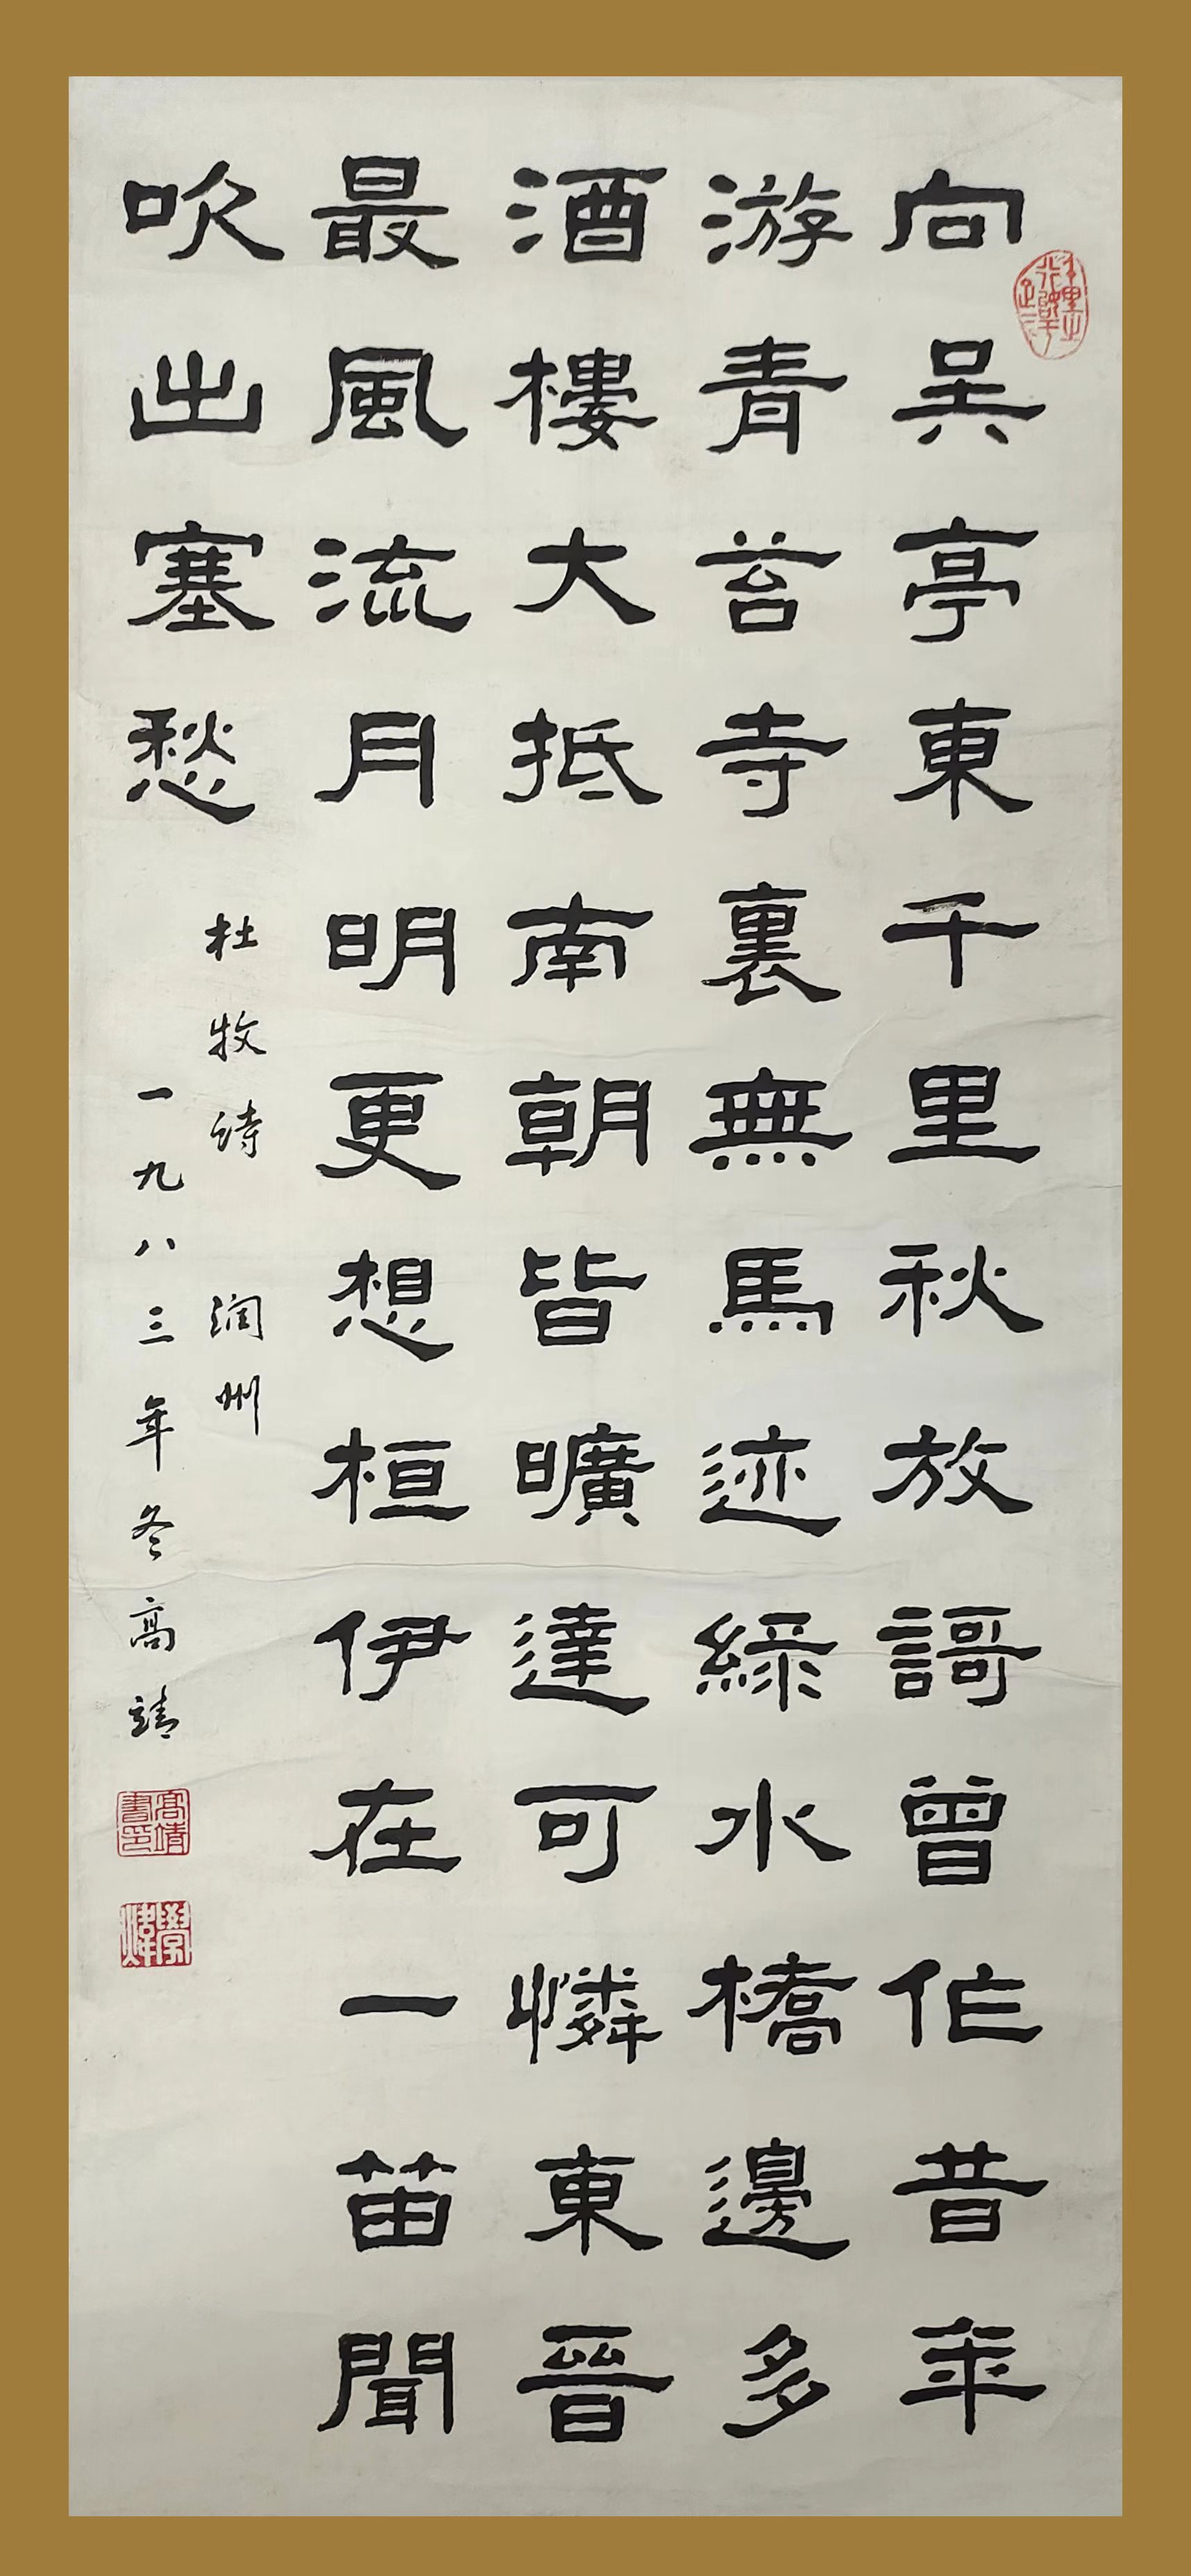 向吴亭東千里秋放謌曾作昔年
游青苔寺裏無馬迹綠水橋邊多
酒樓大抵南朝皆曠達可憐東晉
最風流月明更想桓伊在一笛聞
吹出塞愁
杜牧诗 润州
一九八三年冬高靖
高靖書印